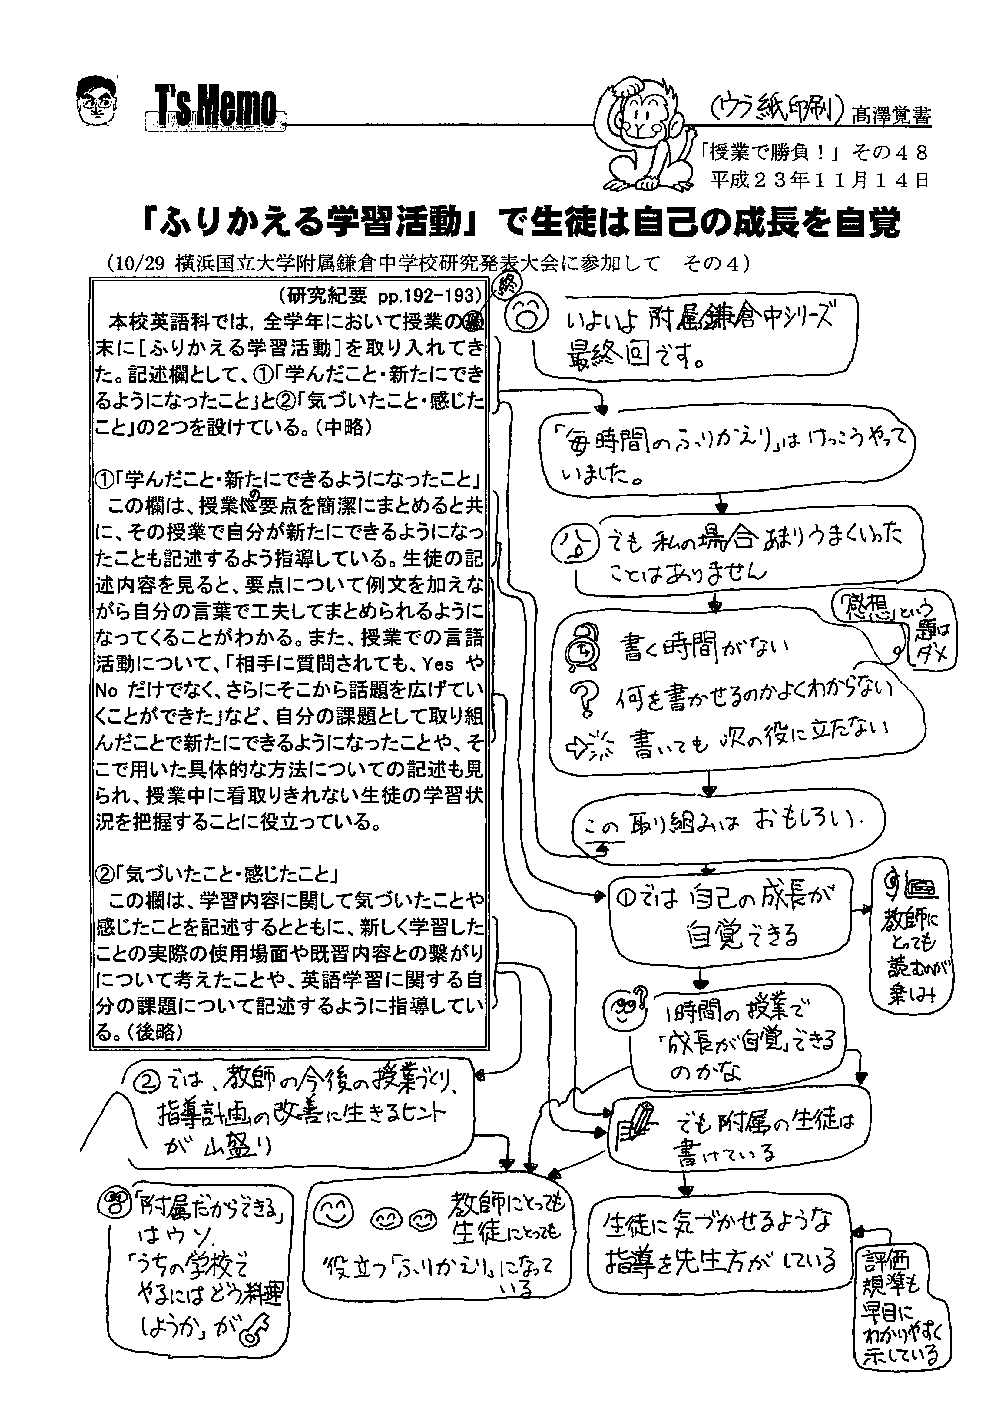 T's Memo
(ウラ紙印刷) 髙澤覚書
「授業で勝負！」その４８
平成２３年１１月１４日
「ふりかえる学習活動」で生徒は自己の成長を自覚
（10/29 横浜国立大学附属鎌倉中学校研究発表大会に参加して　その４）
（研究紀要 pp.192-193）
本校英語科では，全学年において授業の終
末に［ふりかえる学習活動］を取り入れてき
た。記述欄として、①「学んだこと・新たにでき
るようになったこと」と②「気づいたこと・感じた
こと」の２つを設けている。（中略）
①「学んだこと・新たにできるようになったこと」
この欄は、授業の要点を簡潔にまとめると共
に、その授業で自分が新たにできるようになっ
たことも記述するよう指導している。生徒の記
述内容を見ると、要点について例文を加えな
がら自分の言葉で工夫してまとめられるように
なってくることがわかる。また、授業での言語
活動について、「相手に質問されても、Yes や
No だけでなく、さらにそこから話題を広げてい
くことができた」など、自分の課題として取り組
んだことで新たにできるようになったことや、そ
こで用いた具体的な方法についての記述も見
られ、授業中に看取りきれない生徒の学習状
況を把握することに役立っている。
②「気づいたこと・感じたこと」
この欄は、学習内容に関して気づいたことや
感じたことを記述するとともに、新しく学習した
ことの実際の使用場面や既習内容との繋がり
について考えたことや、英語学習に関する自
分の課題について記述するように指導してい
る。（後略）
終
いよいよ附属鎌倉中シリーズ
最終回です。
「毎時間のふりかえり」はけっこうやって
いました。
でも私の場合あまりうまくいった
ことはありません
「感想」という
題は
ダメ
書く時間がない
? 何を書かせるのかよくわからない
書いても次の役に立たない
この取り組みはおもしろい.
①では自己の成長が
自覚できる
教師に
とっても
読むのが
楽しみ
1時間の授業で
「成長が自覚」できる
のかな
でも附属の生徒は
書けている
生徒に気づかせるような
指導を先生方がしている
評価
規準も
早目に
わかりやすく
示している
②では、教師の今後の授業づくり、
指導計画の改善に生きるヒント
が山盛り
教師にとっても
生徒にとっても
役立つ「ふりかえり」になって
いる
「附属だからできる」
はウソ.
「うちの学校で
やるにはどう料理
しようか」が